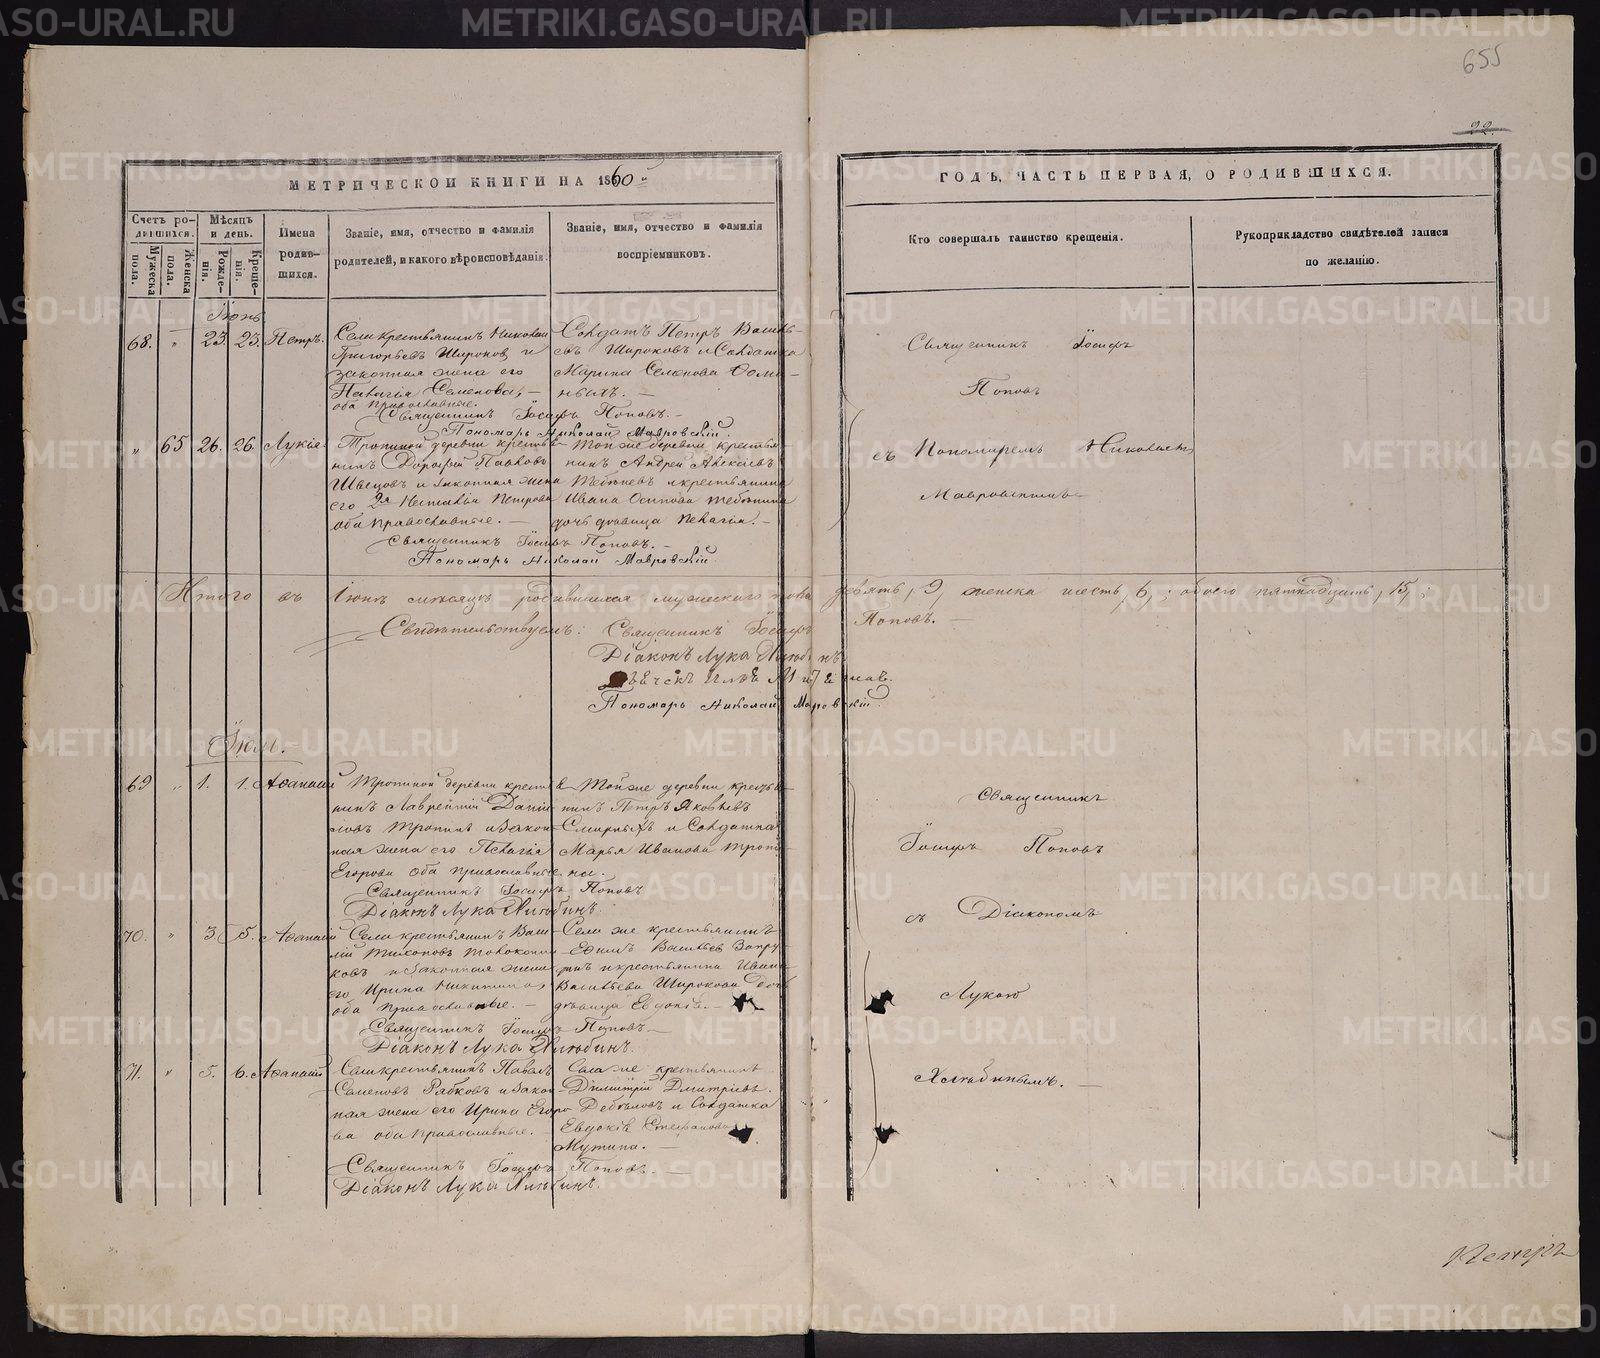 METRIKI.GASO-URAL.RU
655
22.
МЕТРИЧЕСКОЙ КНИГИ НА 1860й
ГОДЪ, ЧАСТЬ ПЕРВАЯ, О РОДИВШИХСЯ.
Счетъ ро-
дившихся.
Мужеска
пола.
Женска
пола.
Мѣсяцъ
и день.
Рожде-
нія.
Креще-
нія.
Имена
родив-
шихся.
Званіе, имя, отчество и фамилія
родителей, и какого вѣроисповѣданія.
Званіе, имя, отчество и фамилія
воспріемниковъ.
Кто совершалъ таинство крещенія.
Рукоприкладство свидѣтелей записи
по желанію.
Іюнь
68. „ 23. 23. Петръ.
Села крестьянинъ Николай
Григорьевъ Широковъ и
законная жена его
Пелагія Семенова, —
оба православные.
Солдатъ Петръ Василь-
евъ Широковъ и Солдатка
Марина Семенова Фоми-
ныхъ. —
Священникъ Іосифъ Поповъ. —
Пономарь Николай Мавровскій.
Священникъ Іосифъ
Поповъ
„ 65 26. 26. Лукія
Тропиной деревни крестья-
нинъ Дорофей Павловъ
Швецовъ и законная жена
его 2я Петрова
оба православные. —
Той же деревни крестья-
нинъ Андрей Алексѣевъ
и крестьянина
Ивана Осипова
дочь дѣвица Пелагія. —
Священникъ Іосифъ Поповъ. —
Пономарь Николай Мавровскій.
съ Пономаремъ Николаемъ
Мавровскимъ
Итого въ Іюнѣ мѣсяцѣ родившихся мужескаго пола девять, 9, женска шесть, 6, обоего пятнадцать, 15,
Свидѣтельствуемъ: Священникъ Іосифъ Поповъ. —
Діаконъ Лука Хлѣбинъ
Пономарь Николай Мавровскій.
Іюль. —
69 „ 1. 1. Аѳанасій
Тропиной деревни крестья-
нинъ Лаврентій Дани-
ловъ Тропинъ и закон-
ная жена его Пелагія
Егорова оба православные
Той же деревни крестья-
нинъ Петръ Яковлевъ
Смирныхъ и Солдатка
Марья Иванова Тропи-
на.
Священникъ Іосифъ Поповъ
Діаконъ Лука Хлѣбинъ.
Священникъ
Іосифъ Поповъ
съ Діакономъ
Лукою
Хлѣбинымъ. —
70. „ 3. 5. Аѳанасій
Села крестьянинъ Васи-
лій Тихоновъ Толоконни-
ковъ и законная жена
его Ирина Никитина,
оба православные. —
Села же крестьянинъ
Ефимъ Васильевъ
и крестьянина Ивана
Васильева Широкова дочь
дѣвица Евдокія. —
Священникъ Іосифъ Поповъ —
Діаконъ Лука Хлѣбинъ.
71. „ 5. 6. Аѳанасій
Села крестьянинъ Павелъ
Семеновъ Рябковъ и закон-
ная жена его Ирина Егоро-
ва оба православные. —
Села же крестьянинъ
Димитрій Дмитріевъ
и Солдатка
Евдокія Стефанова
Мутина. —
Священникъ Іосифъ Поповъ. —
Діаконъ Лука Хлѣбинъ.